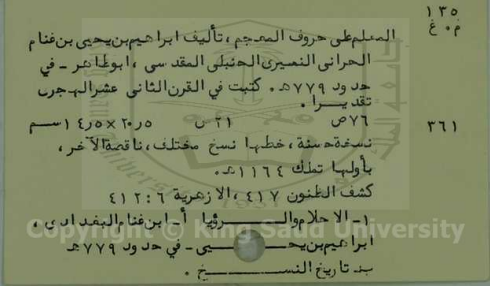 ١٣٥
م٠غ
المعلم على حروف المعجم، تأليف ابراهيم بن يحيى بن غنام
الحرانى النميرى الحنبلى المقدسى، ابوطاهر - في
حدود ٧٧٩هـ. كتبت في القرن الثانى عشر الهجرى
تقديرا.
٣٦١ ٧٦ص ٢١س ٢٠٫٥×١٤٫٥سم
نسخة حسنة، خطها نسخ مختلف، ناقصة الآخر،
بأولها تملك ١١٦٤هـ.
كشف الظنون ٤١٧، الازهرية ٦:٤١٢
١- الاحلام والرؤيا أ- ابن غنام البغدادى،
ابراهيم بن يحيى - في حدود ٧٧٩هـ
ب- تاريخ النسخ.
Copyright © King Saud University